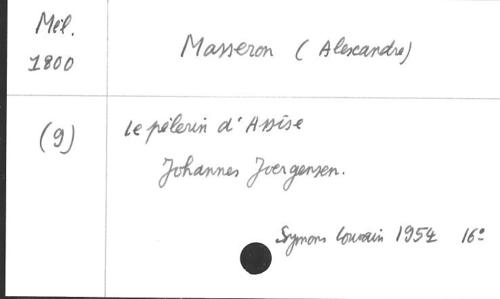 Mél.
1800
Masseron (Alexandre)
(9)
Le pélerin d'Assise
Johannes Joergensen.
Symons Louvain 1954 16º